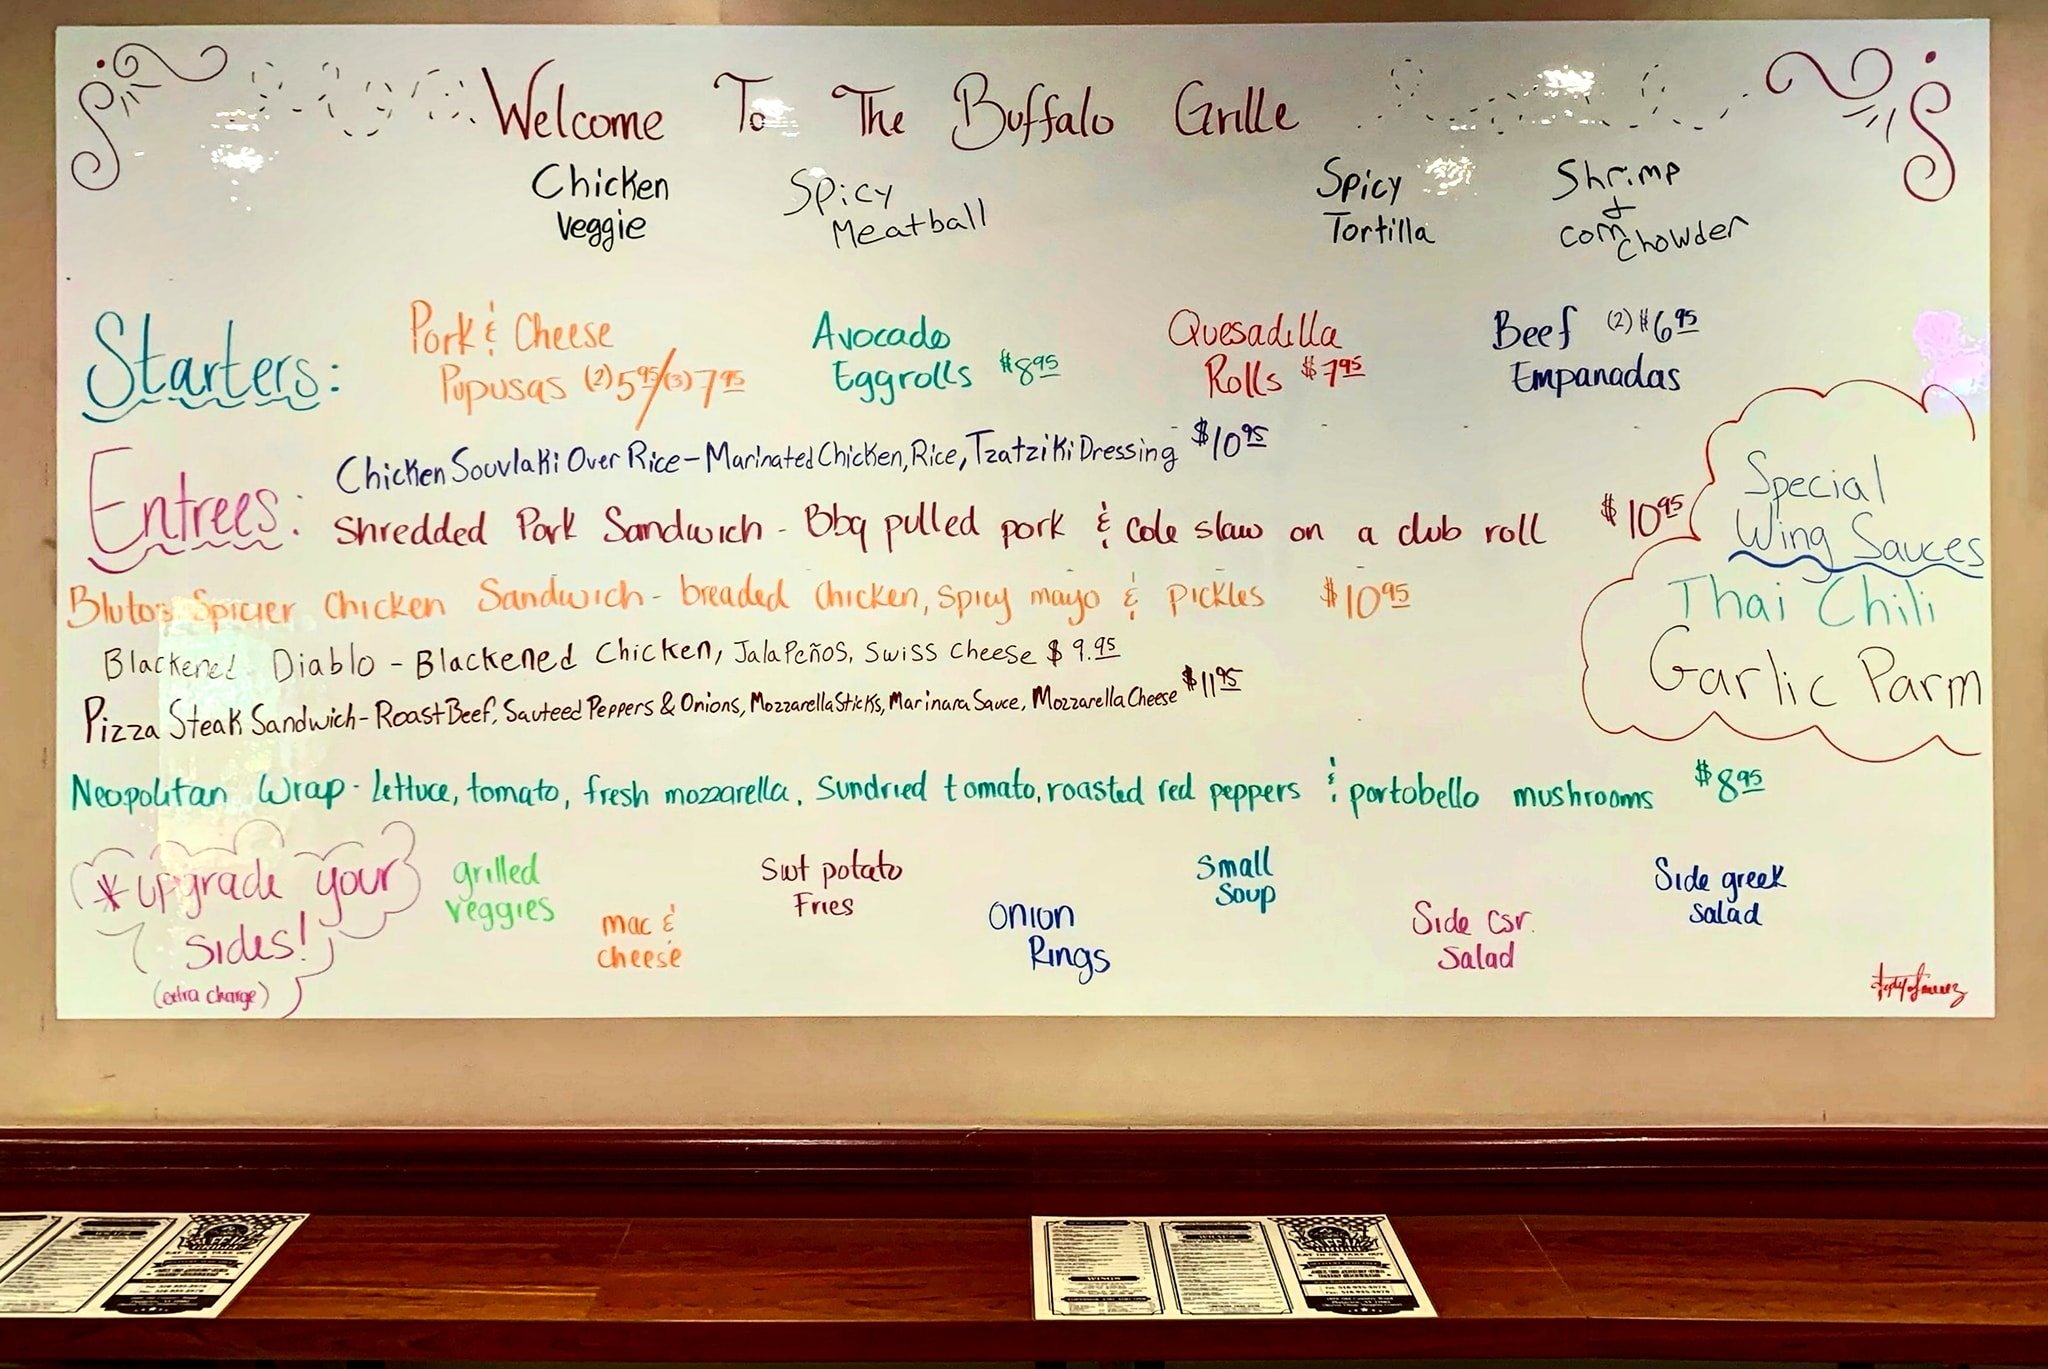 Welcome To The Buffalo Grille
Chicken
Veggie
Spicy
Meatball
Spicy
Tortilla
Shrimp
&
corn chowder
Starters:
Pork & Cheese
Pupusas (2) 5.95/(3) 7.95
Avocado
Eggrolls $8.95
Quesadilla
Rolls $7.95
Beef (2) $6.95
Empanadas
Entrees:
Chicken Souvlaki Over Rice - Marinated Chicken, Rice, Tzatziki Dressing $10.95
Shredded Pork Sandwich - Bbq pulled pork & cole slaw on a club roll $10.95
Blutos Spicier Chicken Sandwich - breaded chicken, spicy mayo & pickles $10.95
Blackened Diablo - Blackened Chicken, Jalapeños, Swiss Cheese $9.95
Pizza Steak Sandwich - Roast Beef, Sauteed Peppers & Onions, Mozzarella Sticks, Marinara Sauce, Mozzarella Cheese $11.95
Neopolitan Wrap - lettuce, tomato, fresh mozzarella, sundried tomato, roasted red peppers & portobello mushrooms $8.95
Special
Wing Sauces
Thai Chili
Garlic Parm
*upgrade your
sides!
(extra charge)
grilled
veggies
mac &
cheese
Swt potato
Fries
Onion
Rings
Small
Soup
Side csr.
Salad
Side greek
salad
WINGS
EAT IN OR TAKE OUT